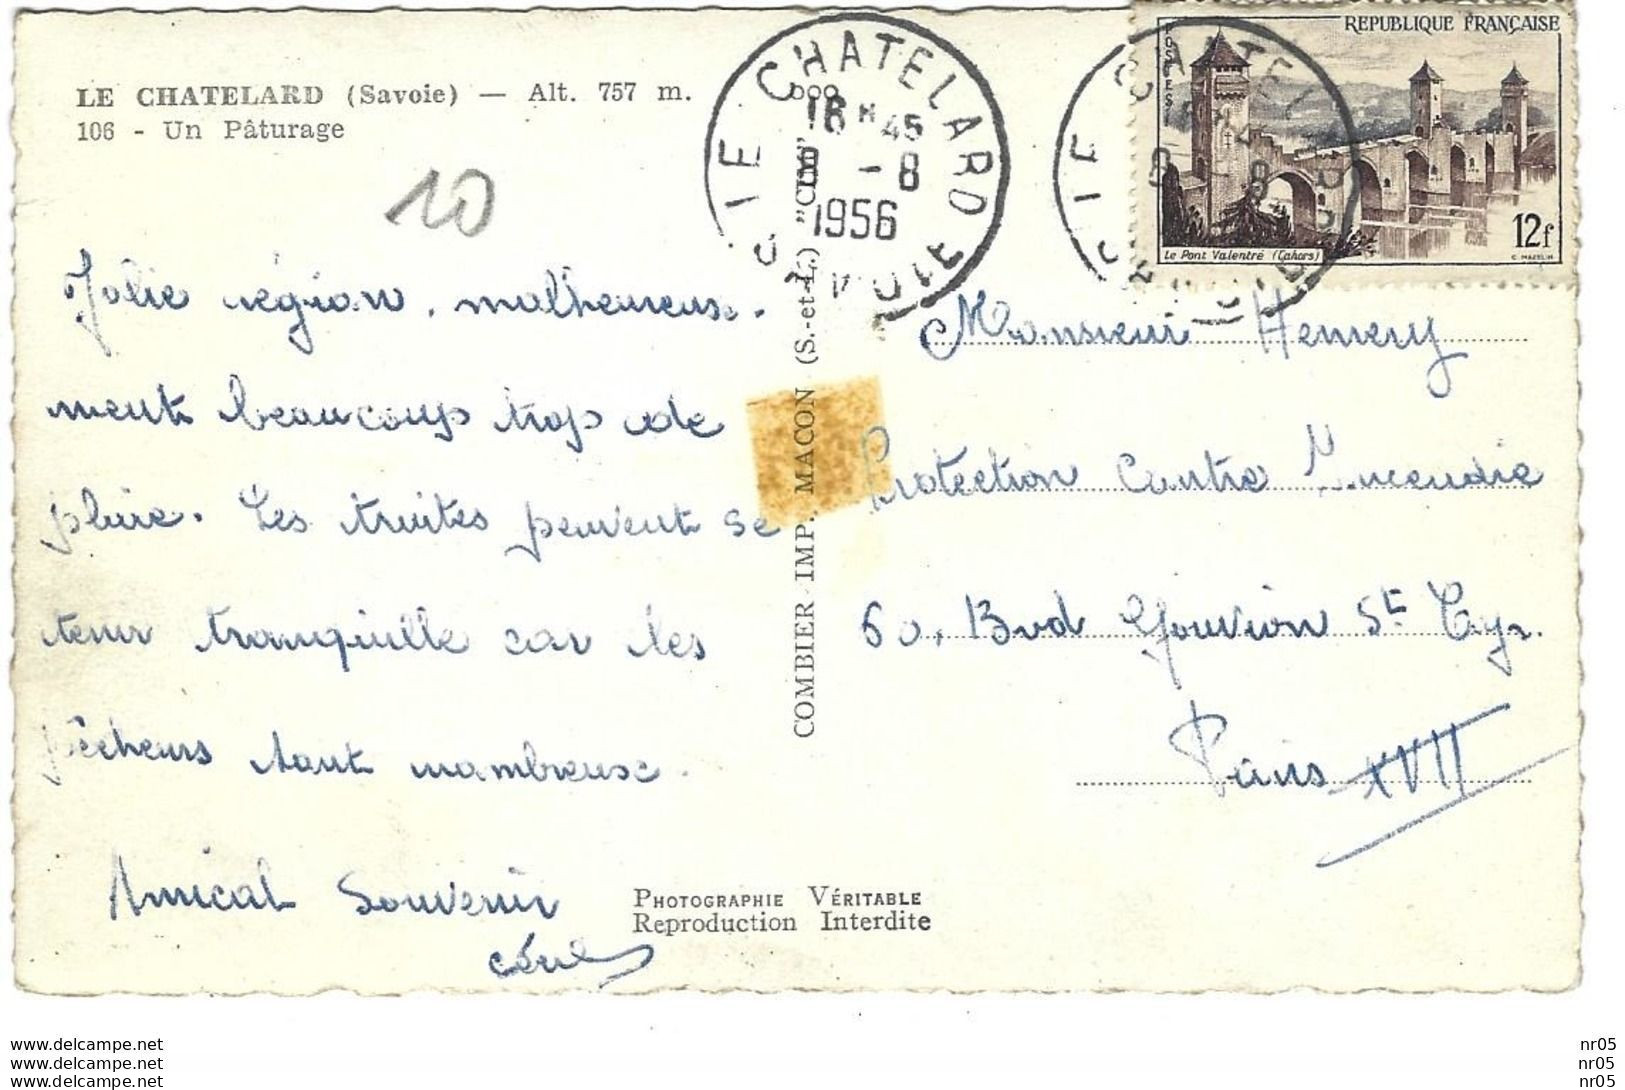 LE CHATELARD (Savoie) — Alt. 757 m.
106 - Un Pâturage
10
Jolie région, malheureuse-
ment beaucoup trop de
pluie. Les truites peuvent se
tenir tranquille car les
pêcheurs sont nombreuse.
Amical Souvenir
PHOTOGRAPHIE VÉRITABLE
Reproduction Interdite
COMBIER IMP. MACON (S.-et-L.) "CIM"
LE CHATELARD
SAVOIE
16 H 45
8 - 8
1956
REPUBLIQUE FRANÇAISE
POSTES
12f
Le Pont Valentré (Cahors)
C. MAZELIN
Monsieur Hemery
Protection Contre Incendie
60, Bvd Gouvion St Cyr.
Paris XVII
www.delcampe.net
www.delcampe.net
www.delcampe.net
nr05
nr05
nr05